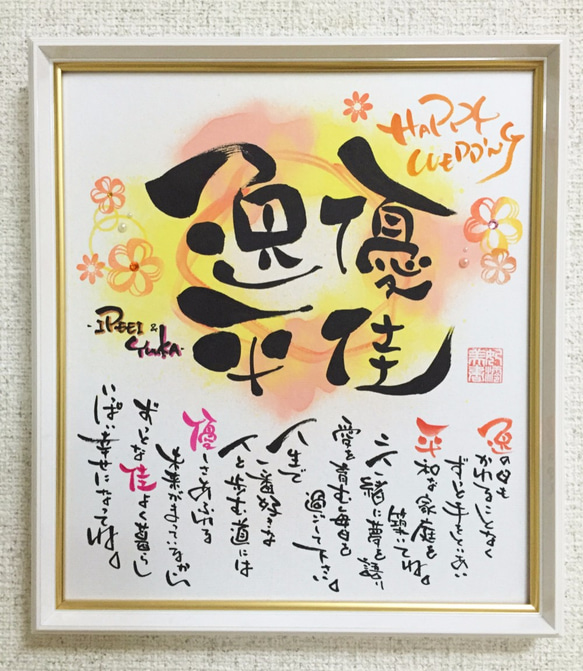 HAPPY
WEDDING
優佳
逸平
-IPEEI &
Yuuka-
逸の日も
かわることなく
ずっと手をとりあい
平和な家庭を
築いてね。
二人一緒に夢を語い
愛を育む毎日を
過ごして下さい。
人生で
一番好きな
人と歩む道には
優しさあふれる
未来がまっているから
ずっとな佳よく暮らし
いっぱい幸せになってね。